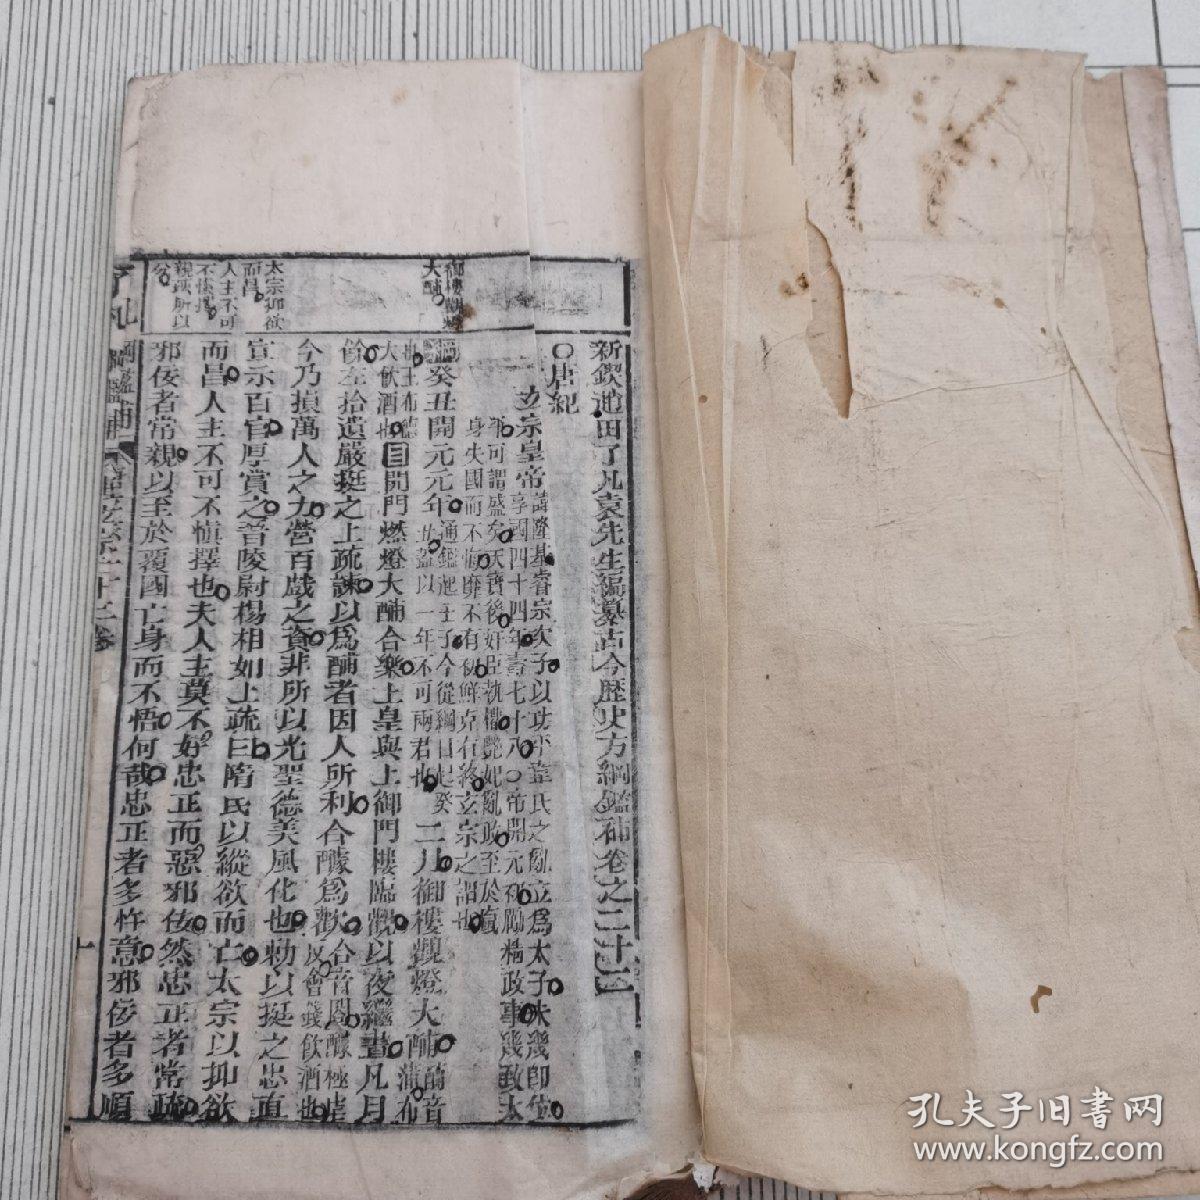 新鍥趙田了凡袁先生編纂古今歷史大方綱鑑補卷之二十三
○唐紀
玄宗皇帝
諱隆基睿宗次子以功平韋氏之亂立為太子未幾即位
享國四十四年壽七十八○帝開元初勵精政事幾致太
平可謂盛矣天寶後奸臣執權艷妃亂政至於竄
身失國而不悔靡不有初鮮克有終玄宗之謂也
綱癸丑開元元年
通鑑起壬子今從綱目起癸
丑蓋以一年不可兩君也
二月御樓觀燈大酺
酺音
蒲布
也王布德
大飲酒也
目開門燃燈大酺合樂上皇與上御門樓臨觀以夜繼晝凡月
餘左拾遺嚴挺之上疏諫以為酺者因人所利合醵為歡
合音閤醵極虐
反會錢飲酒也
今乃損萬人之力營百戲之資非所以光聖德美風化也勅以挺之忠直
宣示百官厚賞之晉陵尉楊相如上疏曰隋氏以縱欲而亡太宗以抑欲
而昌人主不可不慎擇也夫人主莫不好忠正而惡邪佞然忠正者常疏
邪佞者常親以至於覆國亡身而不悟何哉忠正者多忤意邪佞者多順
御樓觀燈
大酺
太宗抑欲
而昌
人主不可
不慎擇
親疏所以
分
了凡綱鑑補
唐玄宗二十三卷
一
孔夫子旧書网
www.kongfz.com